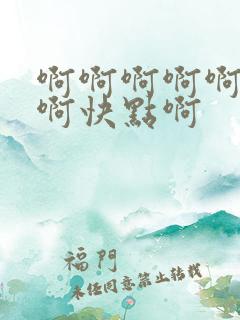 啊啊啊啊啊
啊快點啊
福門
未經同意禁止轉載